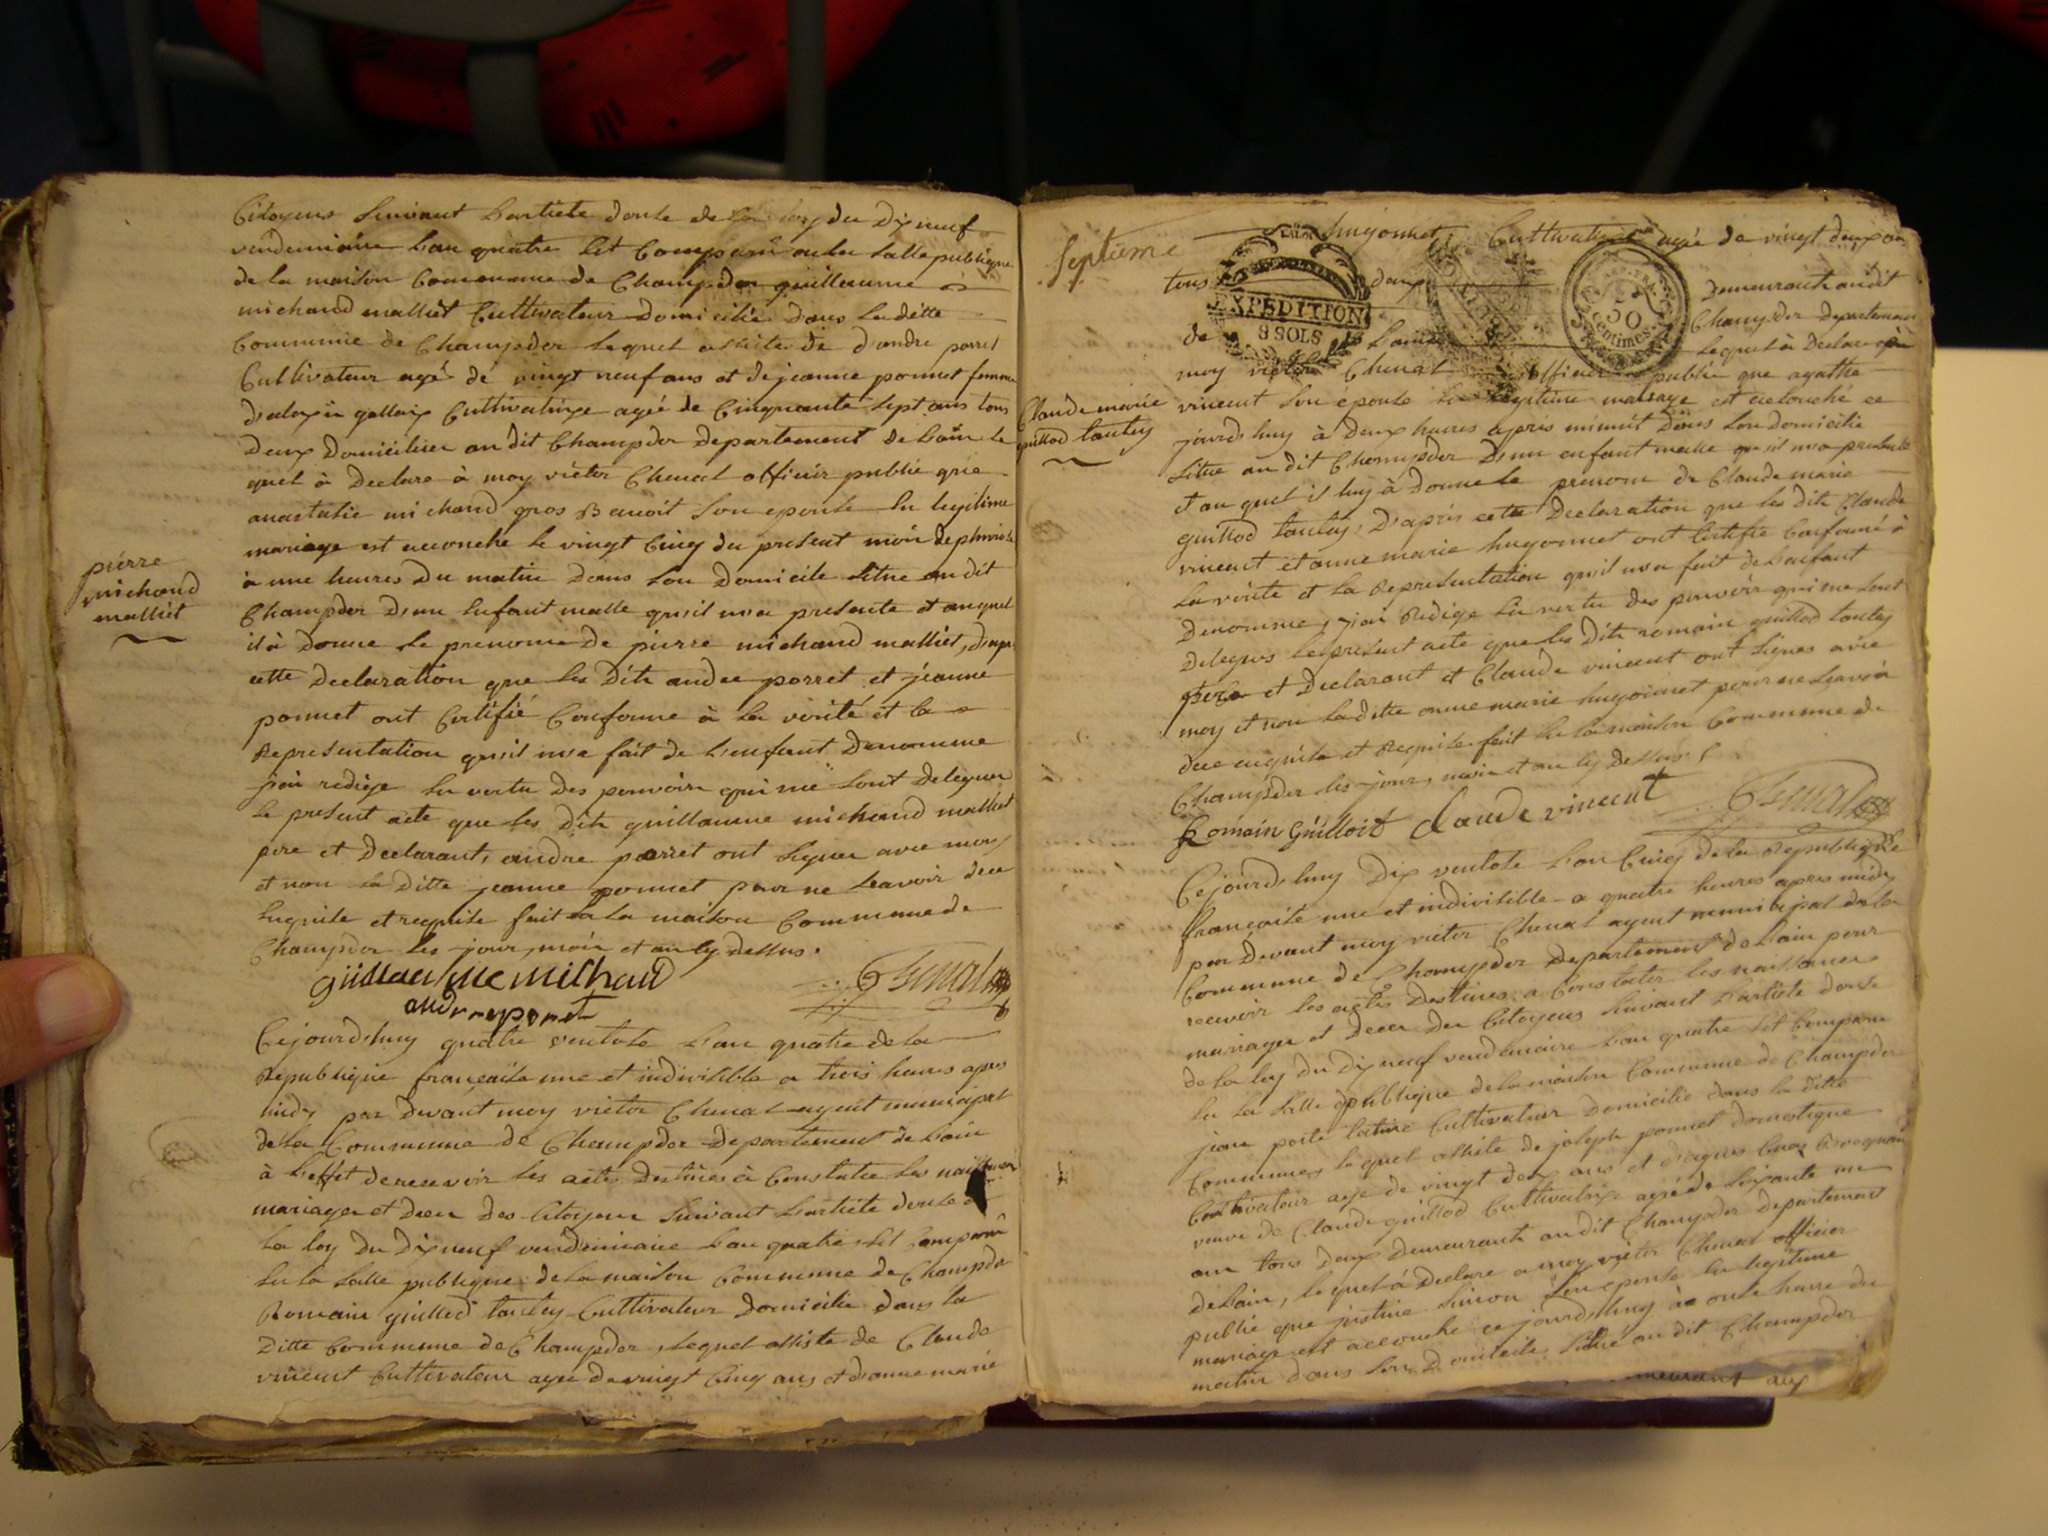 Citoyens suivant L'article douse de la loy du Dix neuf
vendemiaire L'an quatre Est Comparu en la salle publique
de la maison Commune de Champdor guillaume
michaud malliet Cultivateur Domicilié dans la ditte
Commune de Champdor lequel assiste de d'andre porret
Cultivateur agé de vingt neuf ans et de jeanne ponnet femme
d'alexis gallaix Cultivatrixe agée de Cinquante sept ans tous
Deux Domicilier au dit Champdor Departement de L'ain le
quel à Declare à moy victor Chenal officier public que
anastasie michaud gros Benoit son epouse En legitime
mariage est accouché le vingt Cinq du present mois de pluviose
à une heures Du matin Dans son Domicile situe au dit
Champdor D'un Enfant malle qu'il m'a presente et auquel
il à Donne le prenom de pierre michaud malliet, D'apres
cette Declaration que les Dits andre porret et jeanne
ponnet ont Certifié Conforme à la vérité et la
Representation qu'il m'a fait de L'enfant Denomme
j'ai redige En vertu Des pouvoirs qui me sont Deleguer
le present acte que les Dits guillaume michaud malliet
pere et Declarant, andre porret ont signer avec moy
et non la Ditte jeanne ponnet pour ne Scavoir de ce
Enquise et requise fait En la maison Commune de
Champdor les jour, mois et an cy Dessus.
pierre
michaud
malliet
guillaume michaud
Chenal
andre poret
Cejourd'huy quatre ventose L'an quatre de la
Republique françaisse une et indivisible a trois heures apres
midy par Devant moy victor Chenal agent municipal
de la Commune de Champdor Departement de L'ain
à L'effet de recevoir les actes Destinés à Constater les naissances
mariages et Deces Des Citoyens suivant L'article douse de
La loy du Dix neuf vendemiaire L'an quatre, Est Comparu
En la salle publique de la maison Commune de Champdor
Romain guillod tautey Cultivateur Domicilie dans la
Ditte Commune de Champdor, lequel assiste de Claude
vincent Cultivateur agee de vingt Cinq ans et d'anne marie
Septieme
hugonnet Cultivatrixe agée de vingt deux ans
tous deux Demeurants au dit
EXPEDITION
8 SOLS
50
Centimes
Champdor Departement
de L'ain lequel à Declare à
moy victor Chenal officier public que agathe
Claude marie
guillod tautey
vincent son épouse En legitime mariage est accouché ce
jourd'huy à Deux heures apres minuit Dans son Domicile
situe au dit Champdor D'un enfant malle qu'il m'a presente
et au quel il luy à Donne le prenom de Claude marie
guillod tautey; D'apres cette Declaration que les dits Claude
vincent et anne marie hugonnet ont Certifie Conforme à
La verite et la Representation qu'il m'a fait de L'enfant
Denomme, j'ai Redige En vertu des pouvoir qui me sont
Delegues le present acte que les Dits romain guillod tautey
pere et Declarant et Claude vincent ont signes avec
moy et non la ditte anne marie hugonnet pour ne scavoir
de ce enquise et Requise fait En la maison Commune de
Champdor les jour, mois et an cy Dessus.
Romain Guilloit Claude vincent Chenal
Cejourd'huy Dix ventose L'an Cinq de la Republique
françaisse une et indivisible a quatre heures apres midy
par Devant moy victor Chenal agent municipal de la
Commune de Champdor Departement de L'ain pour
recevoir les actes Destines a Constater les naissances
mariages et Deces Des Citoyens suivant L'article douse
de la loy du Dix neuf vendemiaire L'an quatre Est Comparu
En la salle publique de la maison Commune de Champdor
Cultivateur Domicilie dans la ditte
Commune, lequel assiste de joseph ponnet domestique
Cultivateur age de vingt deux ans et
veuve de Claude guillod Cultivatrixe agée de soixante un
ans tous Deux Demeurants au dit Champdor Departement
de L'ain, lequel à Declare a moy victor Chenal officier
public que justine simon son epouse En legitime
mariage est accouche ce jourd'huy à onse heure du
matin dans son Domicile situé au dit Champdor